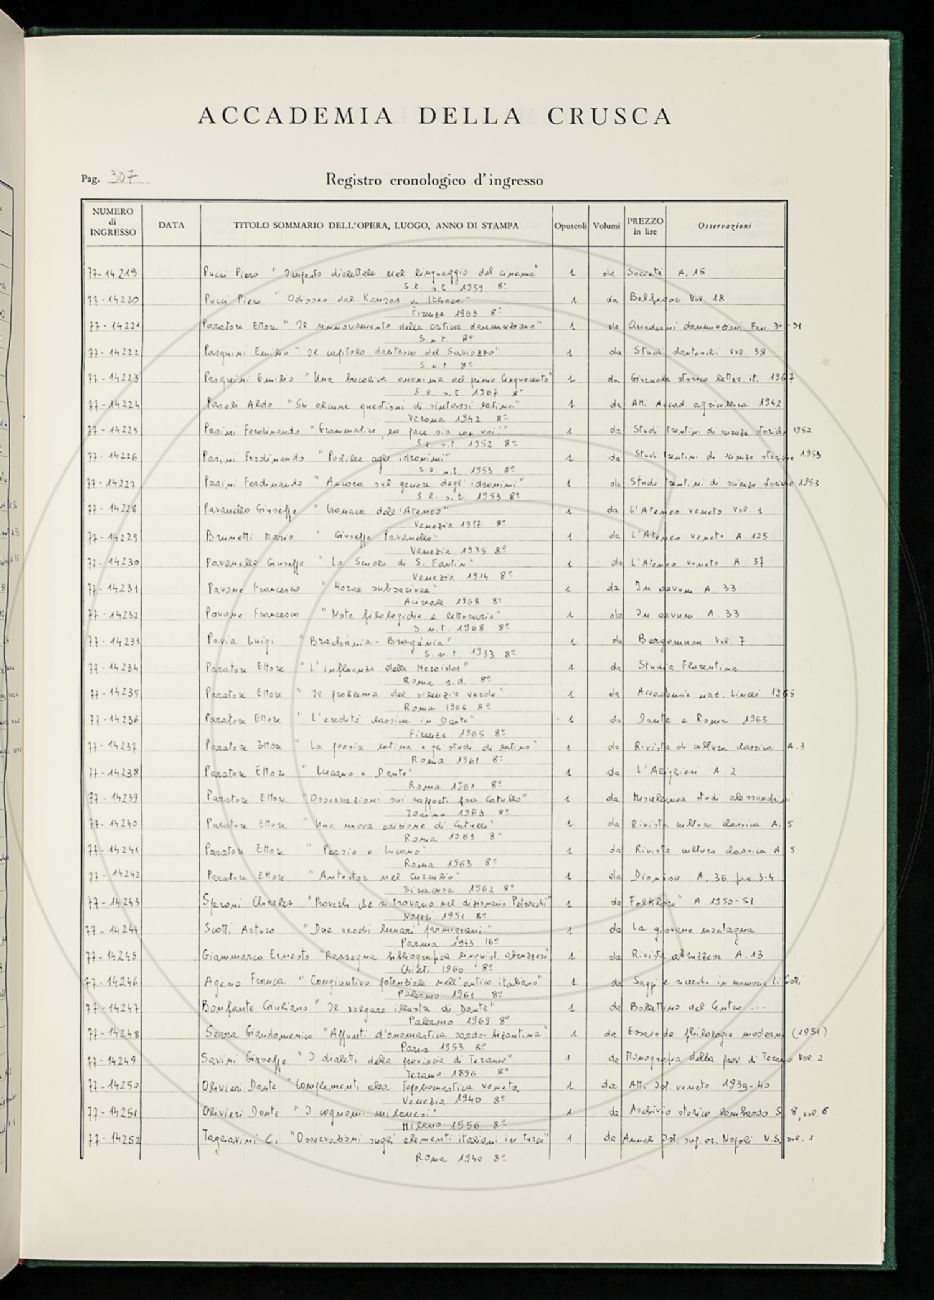 ACCADEMIA DELLA CRUSCA
Pag. 307
Registro cronologico d'ingresso
NUMERO di INGRESSO DATA TITOLO SOMMARIO DELL'OPERA, LUOGO, ANNO DI STAMPA Opuscoli Volumi PREZZO in lire Osservazioni
77-14219 Pucci Piero " dialettale nel linguaggio del cinema" 1 da Società A. 15
S.l. s.t. 1959 8º
77-14220 Pucci Piero "Odisseo dal Kansas a Ithaca" 1 da Belfagor Vol. 18
Firenze 1963 8º
77-14221 Paratore Ettore "Il rinnovamento della critica dannunziana" 1 da Quaderni dannunziani Fasc. 30-31
S.n.t. 8º
77-14222 Pasquini Emilio "Il capitolo dantesco del Saviozzo" 1 da Studi danteschi Vol. 38
S.n.t. 8º
77-14223 Pasquini Emilio "Una bucolica anonima del primo Cinquecento" 1 da Giornale storico letter. it. 1967
S.l. s.t. 1967 8º
77-14224 Pasoli Aldo "Su alcune questioni di sintassi latina" 1 da Atti Accad. agricoltura 1942
Verona 1942 8º
77-14225 Pasini Ferdinando "Grammatici, la pace sia con voi" 1 da Studi trentini di scienze storiche 1952
S.l. s.t. 1952 8º
77-14226 Pasini Ferdinando "Postille agli idronimi" 1 da Studi trentini di scienze storiche 1953
S.l. s.t. 1953 8º
77-14227 Pasini Ferdinando "Ancora sul genere degli idronimi" 1 da Studi trentini di scienze storiche 1953
S.l. s.t. 1953 8º
77-14228 Pavanello Giuseppe "Cronaca dell'Ateneo" 1 da L'Ateneo veneto Vol. 1
Venezia 1917 8º
77-14229 Brunetti Mario "Giuseppe Pavanello" 1 da L'Ateneo veneto A. 125
Venezia 1935 8º
77-14230 Pavanello Giuseppe "La Scuola di S. Fantin" 1 da L'Ateneo veneto A. 37
Venezia 1914 8º
77-14231 Pavone Francesco "Horae subsecivae" 1 da In aevum A. 33
Acireale 1968 8º
77-14232 Pavone Francesco "Note filologiche e letterarie" 1 da In aevum A. 33
S.n.t. 1968 8º
77-14233 Pavia Luigi 1 da Bergomum Vol. 7
S.n.t. 1933 8º
77-14234 Paratore Ettore "L'influenza delle Heroides" 1 da Studia Florentina
Roma s.d. 8º
77-14235 Paratore Ettore "Il problema del silenzio verde" 1 da Accademia naz. Lincei
Roma 1966 8º
77-14236 Paratore Ettore "L'eredità classica in Dante" 1 da Dante e Roma 1965
Firenze 1965 8º
77-14237 Paratore Ettore "La poesia latina e gli studi di latino" 1 da Rivista di cultura classica A. 3
Roma 1961 8º
77-14238 Paratore Ettore "Lucano e Dante" 1 da L'Alighieri A. 2
Roma 1961 8º
77-14239 Paratore Ettore "Osservazioni sui rapporti fra Catullo" 1 da Miscellanea studi alessandrini
Torino 1963 8º
77-14240 Paratore Ettore "Una nuova edizione di Catullo" 1 da Rivista cultura classica A. 5
Roma 1963 8º
77-14241 Paratore Ettore "Persio e Lucano" 1 da Rivista cultura classica A. 5
Roma 1963 8º
77-14242 Paratore Ettore "Antestor nel Curculio" 1 da Dioniso A. 36 fasc. 3-4
Siracusa 1962 8º
77-14243 Speroni Charles "Proverbi che si trovano nel dizionario Petrocchi" 1 da "Folklore" A. 1950-51
Napoli 1951 8º
77-14244 Scotti Arturo "Due vecchi lunari parmigiani" 1 da La giovane montagna
Parma 1943 16º
77-14245 Giammarco Ernesto "Rassegna bibliografica linguist. abruzzese" 1 da Rivista abruzzese A. 13
Chieti 1960 8º
77-14246 Ageno Franca "Congiuntivo potenziale nell'antico italiano" 1 da Saggi e ricerche in memoria E. Li Gotti
Palermo 1961 8º
77-14247 Bonfante Giuliano "Il volgare illustre di Dante" 1 da Bollettino del Centro ...
Palermo 1969 8º
77-14248 Serra Giandomenico "Appunti d'onomastica sardo-bizantina" 1 da Essais de philologie moderne (1951)
Paris 1953 8º
77-14249 Savini Giuseppe "I dialetti della provincia di Teramo" 1 da Monografia della prov. di Teramo Vol. 2
Teramo 1896 8º
77-14250 Olivieri Dante "Complementi alla Toponomastica veneta 1 da Atti Ist. veneto 1939-40
Venezia 1940 8º
77-14251 Olivieri Dante "I cognomi milanesi" 1 da Archivio storico lombardo S. 8, vol. 6
Milano 1556 8º
77-14252 Tagliavini C. "Osservazioni sugli elementi italiani in turco" 1 da Annali Ist. sup. or. Napoli N.S. vol. 1
Roma 1940 8º